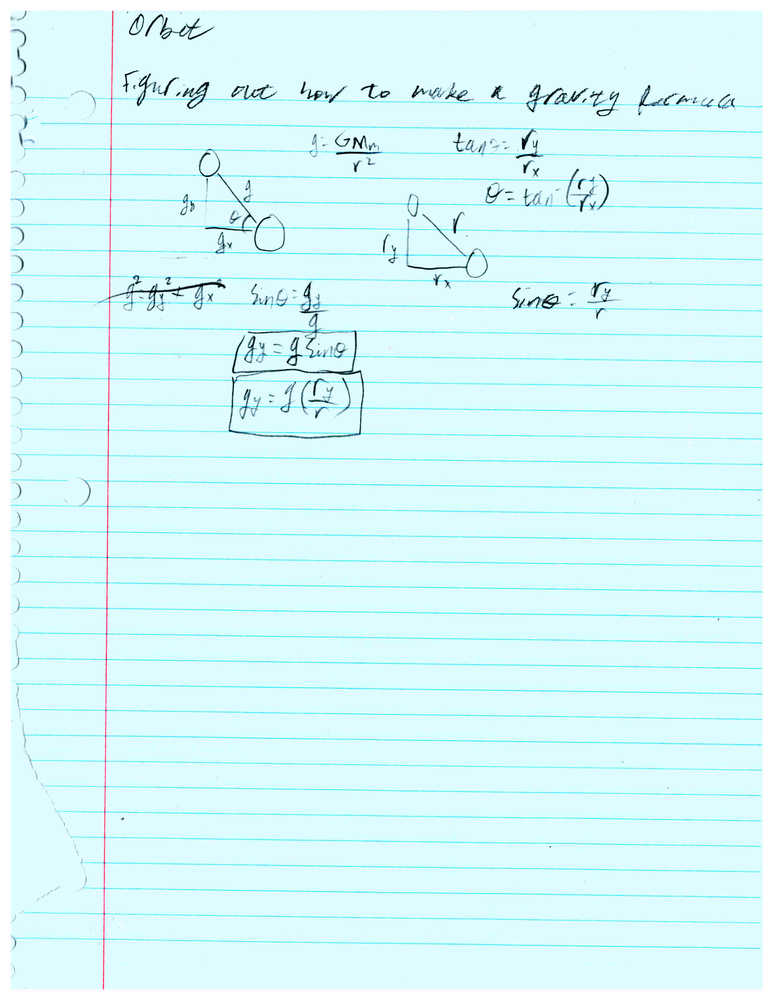 Orbit
Figuring out how to make a gravity formula
g = GMm/r² tan = ry/rx
θ = tan⁻(ry/rx)
g θ gx
r ry rx
g² = gy² + gx² sinθ = gy/g sinθ = ry/r
gy = g sinθ
gy = g(ry/r)